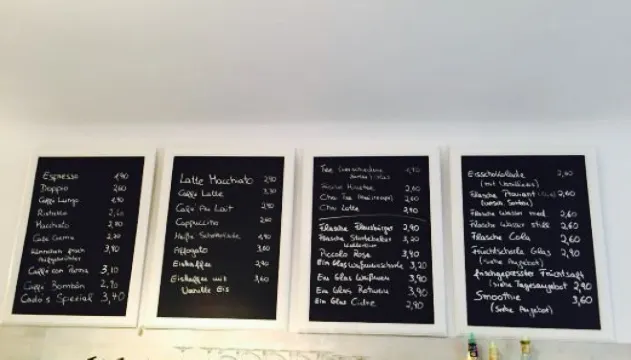 Espresso 1,90
Doppio 2,60
Caffè Lungo 1,90
Ristretto
Macchiato
Café Crema
3,90
Caffè con 3,10
Caffè Bombón 2,90
Special 3,40
Latte Macchiato 2,90
Caffè Latte 3,30
Caffè Au Lait 2,90
Cappuccino 2,60
Heiße Schokolade 1,90
Affogato 3,60
Eiskaffee 2,90
Eiskaffee mit 3,60
Vanille Eis
Tee
2,60
Chai Tee 2,60
Chai Latte 2,90
Flasche Flensburger 2,90
Flasche 3,20
Piccolo Rosé 3,90
Ein Glas Weißweinschorle 3,20
Ein Glas Weißwein 3,90
Ein Glas Rotwein 3,90
Ein Glas Cidre 2,90
Eisschokolade 2,60
(mit Vanilleeis)
Flasche Proviant 2,60
Flasche Wasser med. 2,60
Flasche Wasser still 2,60
Flasche Cola 2,60
Fruchtschorle Glas 2,90
(siehe Angebot)
frischgepresster Fruchtsaft
(siehe Tagesangebot) 2,90
Smoothie 3,60
(siehe Angebot)